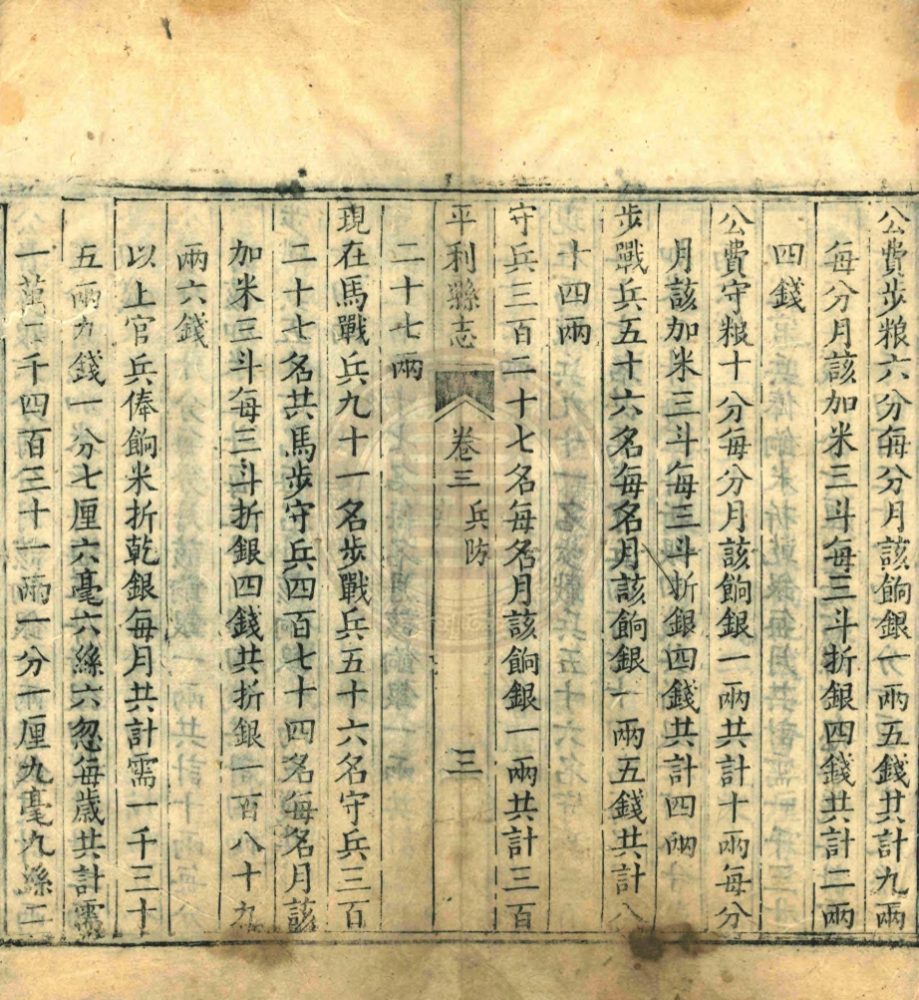 公費步粮六分每分月該餉銀一兩五錢共計九兩
每分月該加米三斗每三斗折銀四錢共計二兩
四錢
公費守粮十分每分月該餉銀一兩共計十兩每分
月該加米三斗每三斗折銀四錢共計四兩
步戰兵五十六名每名月該餉銀一兩五錢共計八
十四兩
守兵三百二十七名每名月該餉銀一兩共計三百
平利縣志 卷三 兵防 三
二十七兩
現在馬戰兵九十一名步戰兵五十六名守兵三百
二十七名共馬步守兵四百七十四名每名月該
加米三斗每三斗折銀四錢共折銀一百八十九
兩六錢
以上官兵俸餉米折乾銀每月共計需一千三十
五兩九錢一分七厘六毫六絲六忽每歲共計需
一萬二千四百三十一兩一分一厘九毫九絲二